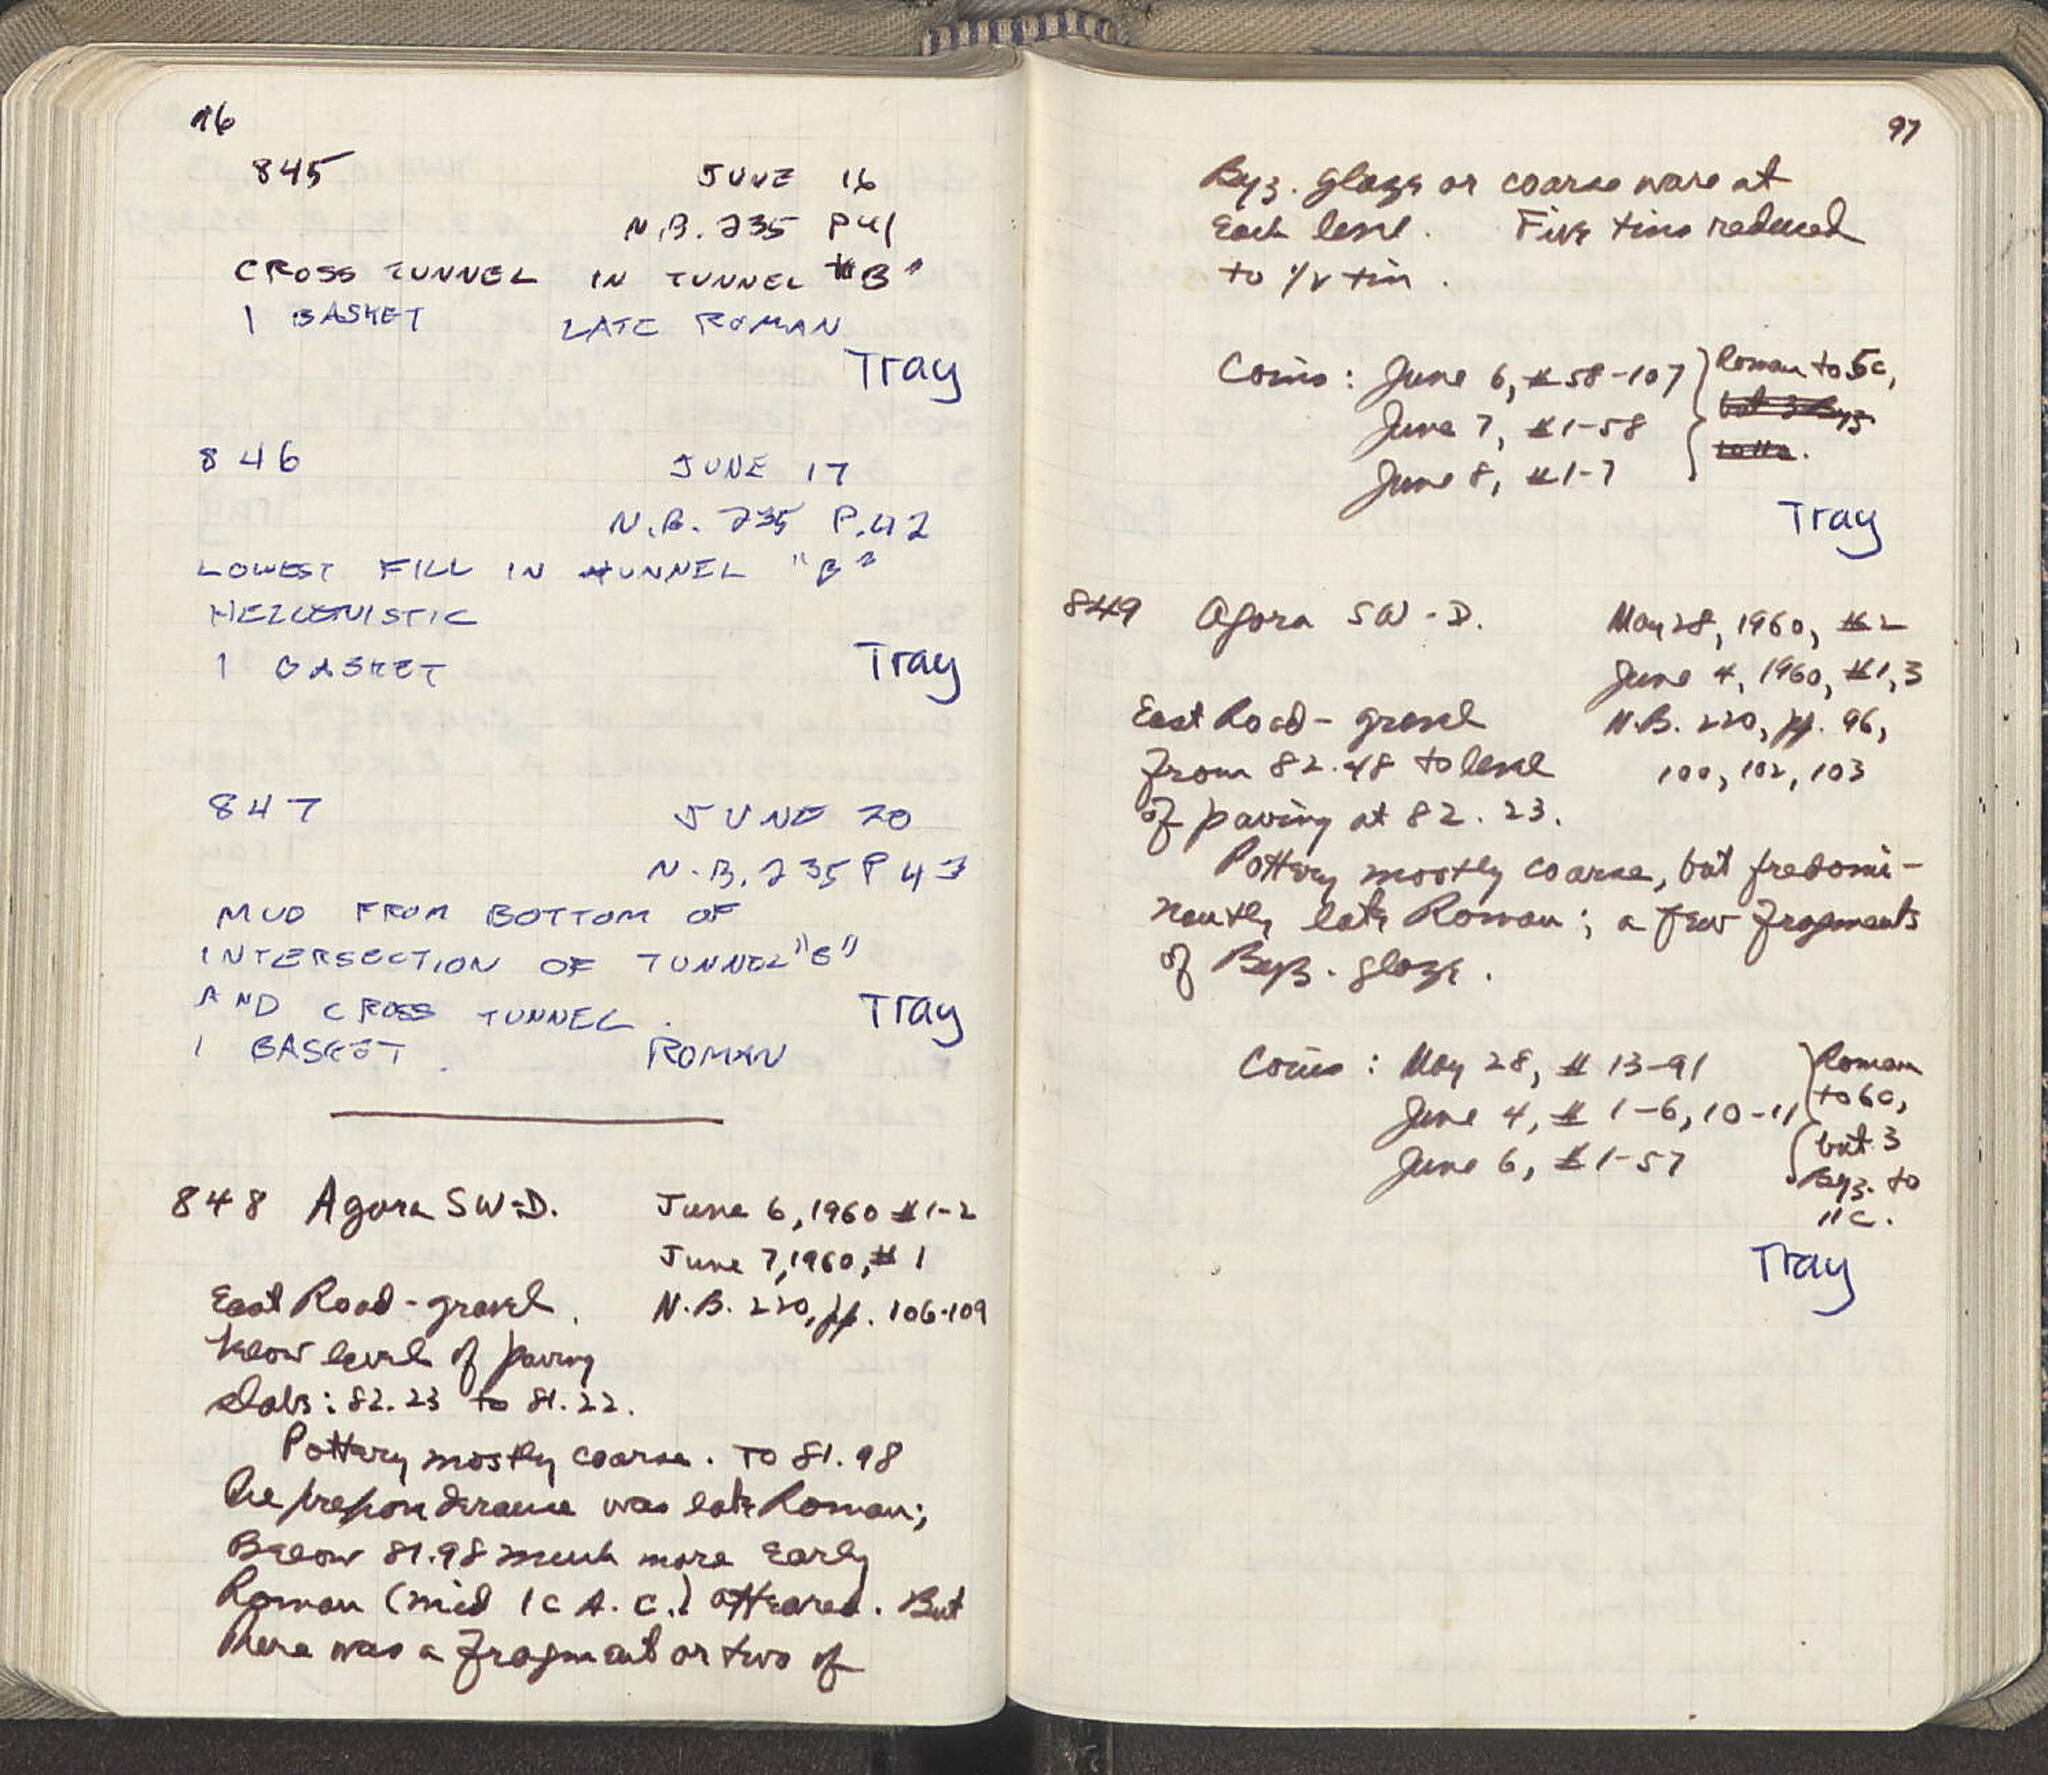 96
845 JUNE 16
N.B. 235 P41
CROSS TUNNEL IN TUNNEL "B"
1 BASKET LATE ROMAN
Tray
846 JUNE 17
N.B. 235 P.42
LOWEST FILL IN TUNNEL "B"
HELLENISTIC
1 BASKET
Tray
847 JUNE 20
N.B. 235 P 43
MUD FROM BOTTOM OF
INTERSECTION OF TUNNEL "B"
AND CROSS TUNNEL.
Tray
1 BASKET. ROMAN
848 Agora SW-D. June 6, 1960 #1-2
June 7, 1960, #1
East Road - gravel. N.B. 220, pp. 106-109
below level of paving
slabs: 82.23 to 81.22.
Pottery mostly coarse. To 81.98
the preponderance was late Roman;
Below 81.98 much more Early
Roman (mid 1c A.C.) appeared. But
there was a fragment or two of
97
Byz. glaze or coarse ware at
Each level. Five tins reduced
to 1/2 tin.
Coins: June 6, #58-107 Roman to 5c,
but 3 Byz
June 7, #1-58
to 11c.
June 8, #1-7
Tray
849 Agora SW-D. May 28, 1960, #2
June 4, 1960, #1,3
East Road - gravel N.B. 220, pp. 96,
from 82.48 to level 100, 102, 103
of paving at 82.23.
Pottery mostly coarse, but predomi-
nantly late Roman; a few fragments
of Byz. glaze.
Coins: May 28, # 13-91 Roman
June 4, # 1-6, 10-11 to 6c,
June 6, #1-57 but 3
Byz. to
11c.
Tray